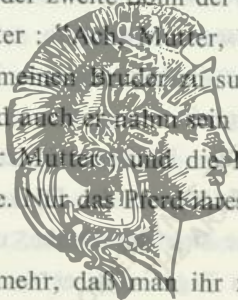 der zweite Sohn der
ter : "Ach, Mutter,
meinen Bruder zu su
d auch er nahm sein
Mutter und die
e. Nur das Pferd ihres
mehr, daß man ihr